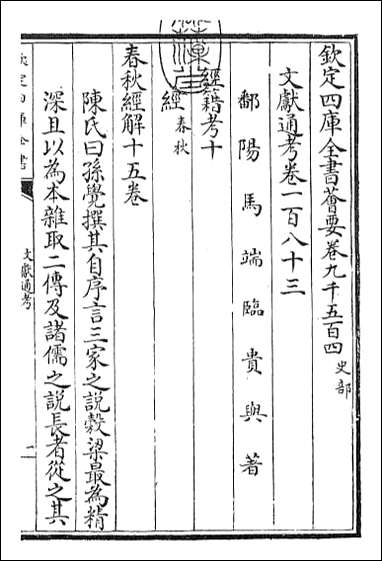 欽定四庫全書薈要卷九千五百四 史部
文獻通考卷一百八十三
鄱陽馬端臨貴與著
經籍考十
經 春秋
春秋經解十五卷
陳氏曰孫覺撰其自序言三家之說穀梁最為精
深且以為本雜取二傳及諸儒之說長者從之其
文獻通考
一